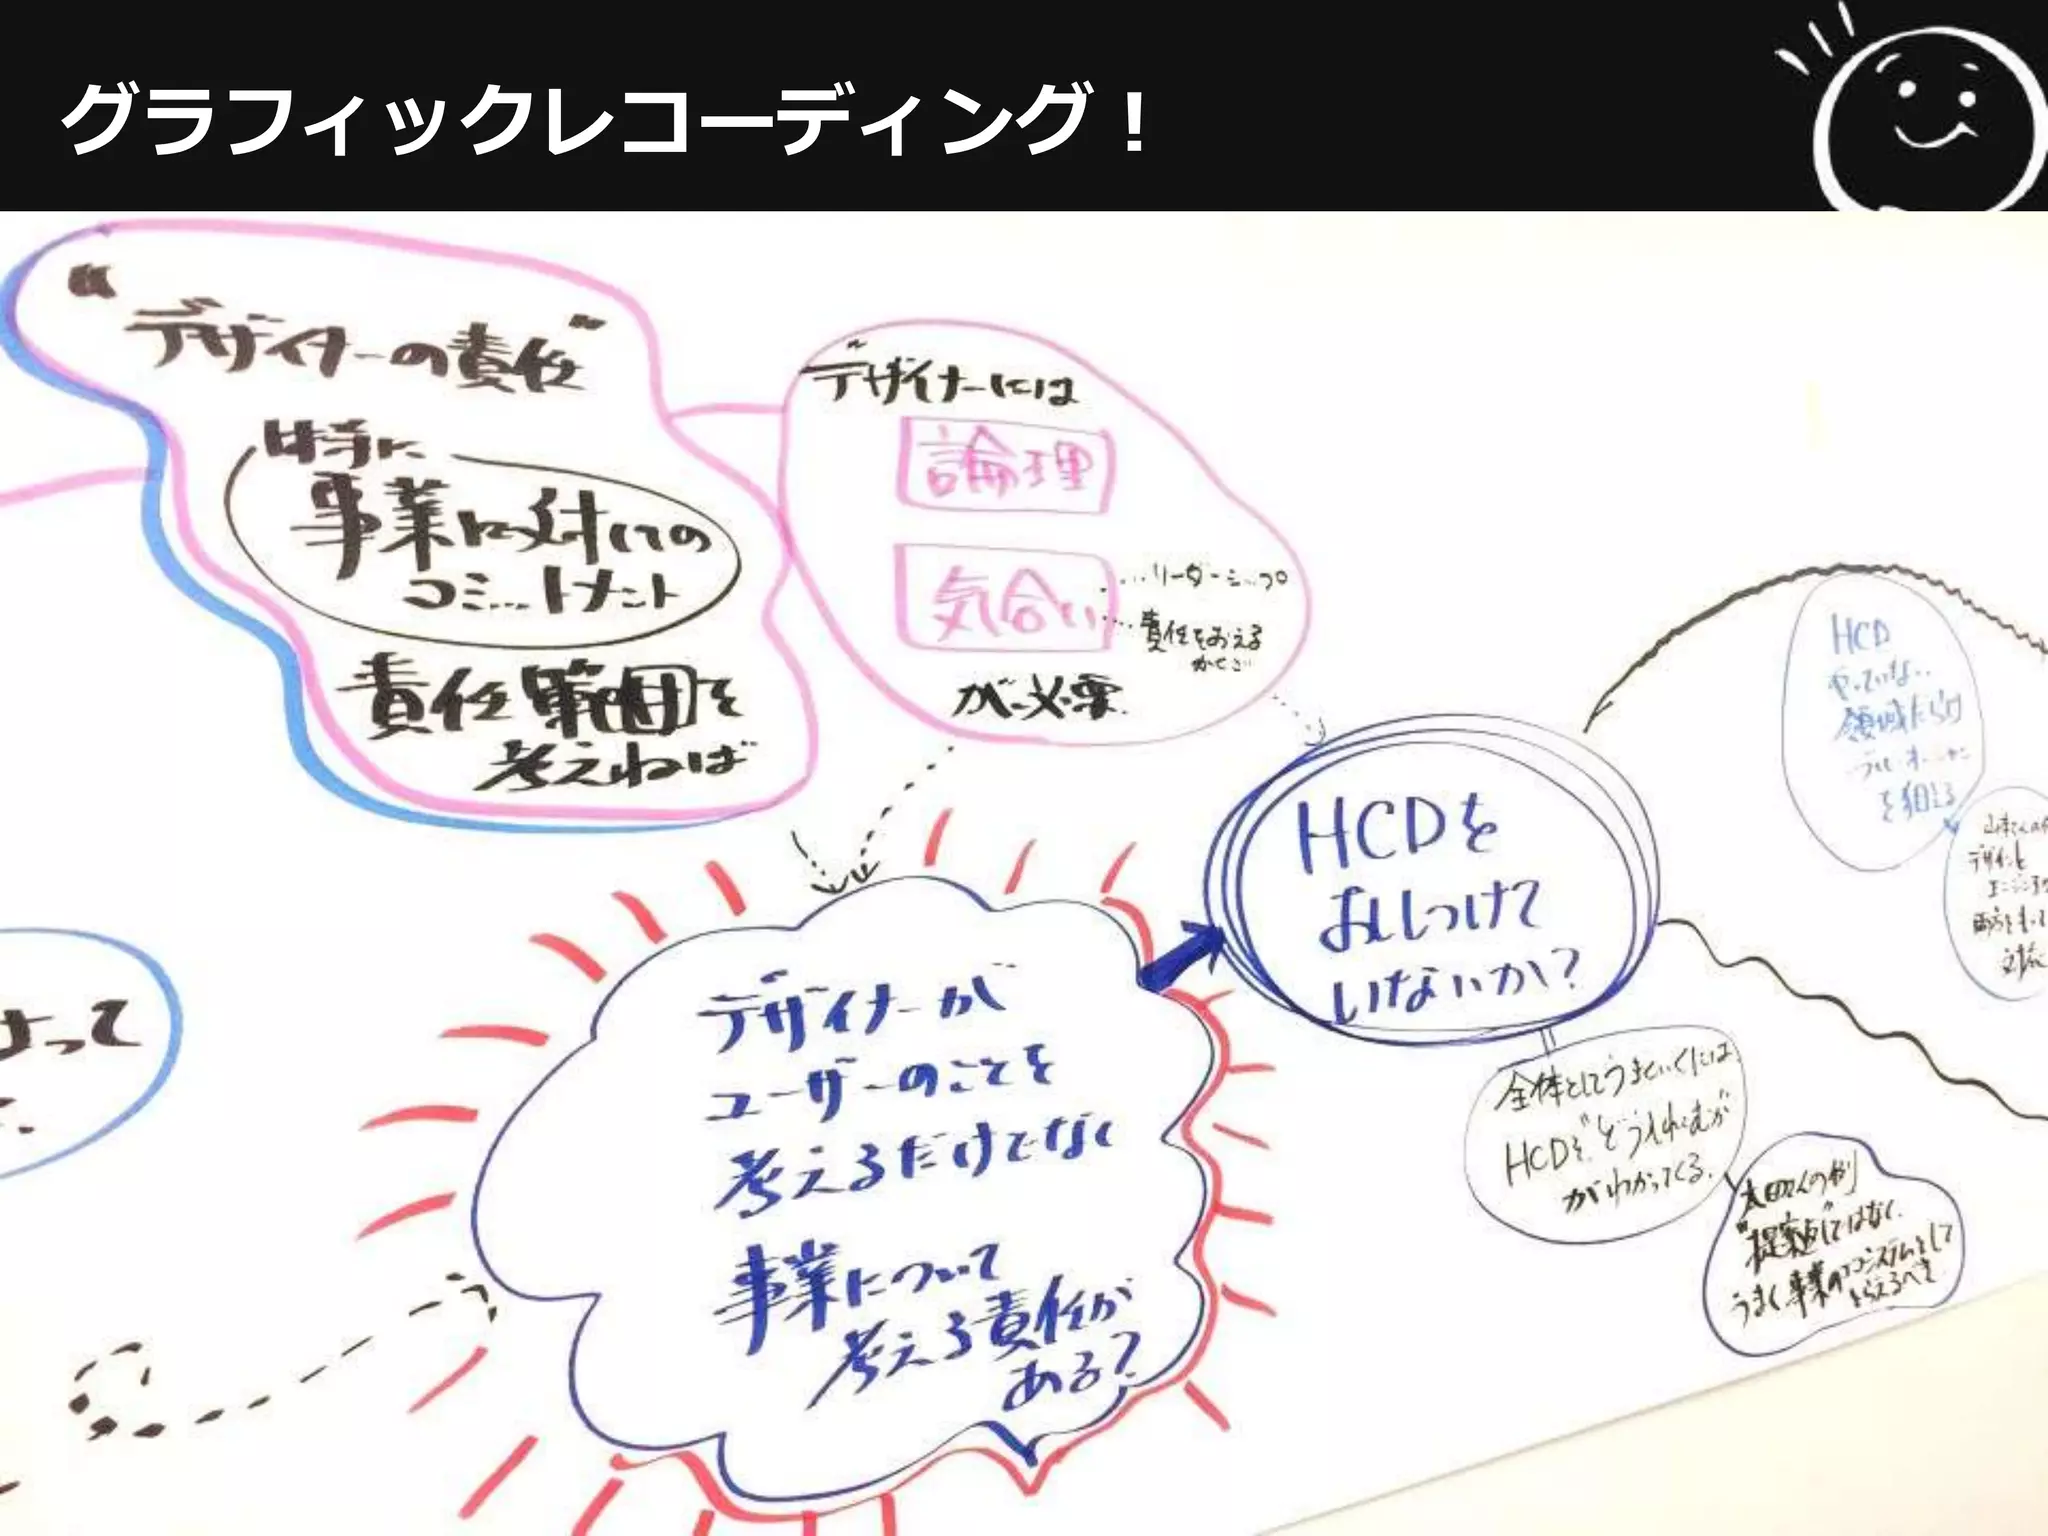 グラフィックレコーディング！
“デザイナーの責任”
特に
事業に対しての
コミットメント
責任範囲を
考えねば
デザイナーには
論理
気合い
リーダーシップ
責任をおえる
かくご
が必要
HCD
やっていない
領域だらけ
ブルーオーシャン
を狙える
デザインと
HCDを
おしつけて
いないか？
よって
デザイナーが
ユーザーのことを
考えるだけでなく
事業について
考える責任が
ある？
全体としてうまくいくには
HCDを“どういれこむか
がわかってくる．
太田さんの例
“提案点”ではなく、
うまく事業のエコシステムとして
とらえるべき